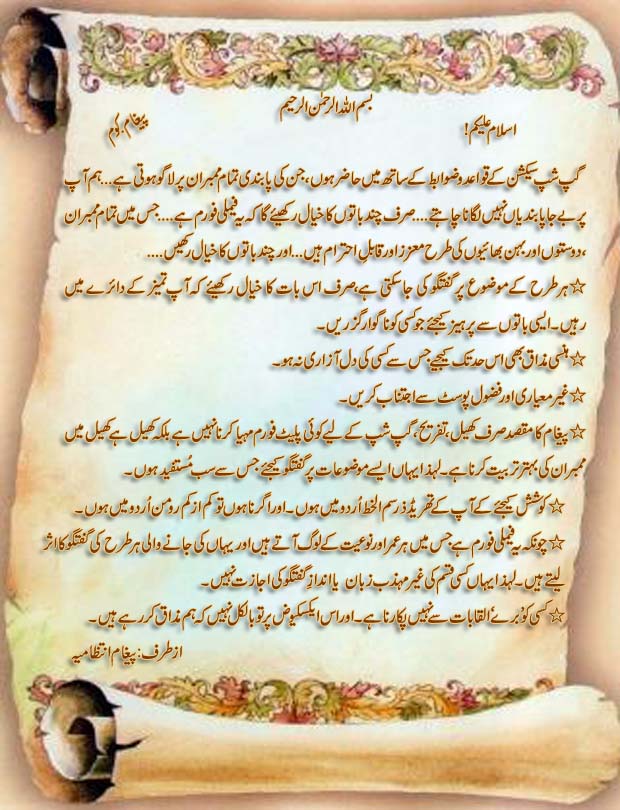 بسم اللہ الرحمٰن الرحیم
اسلام علیکم! پیغام.کوم
گپ شپ سیکشن کے قواعد و ضوابط کے ساتھ میں حاضر ہوں، جن کی پابندی تمام ممبران پر لاگو ہوتی ہے...ہم آپ
پر بے جا پابندیاں نہیں لگانا چاہتے....صرف چند باتوں کا خیال رکھیئے گا کہ یہ فیملی فورم ہے....جس میں تمام ممبران
،دوستوں اور بہن بھائیوں کی طرح معزز اور قابلِ احترام ہیں...اور چند باتوں کا خیال رکھیں....
☆ہر طرح کے موضوع پر گفتگو کی جاسکتی ہے،صرف اس بات کا خیال رکھیئے کہ آپ تمیز کے دائرے میں
رہیں۔ایسی باتوں سے پرہیز کیجیئے جو کسی کو ناگوار گزریں۔
☆ہنسی مذاق بھی اس حد تک کیجیے جس سے کسی کی دل آزاری نہ ہو۔
☆غیر معیاری اور فضول پوسٹ سے اجتناب کریں۔
☆پیغام کا مقصد صرف کھیل،تفریح،گپ شپ کے لیے کوئی پلیٹ فورم مہیا کرنا نہیں ہے بلکہ کھیل ہے کھیل میں
ممبران کی بہتر تربیت کرنا ہے۔لہذا یہاں ایسے موضوعات پر گفتگو کیجیئے جس سے سب مُستفید ہوں۔
☆کوشش کیجیئے کے آپ کے تھریڈز رسم الخط اُردو میں ہوں۔اور اگر نا ہوں تو کم از کم رومن اُردو میں ہوں۔
☆چونکہ یہ فیملی فورم ہے جس میں ہر عمر اور نوعیت کے لوگ آتے ہیں اور یہاں کی جانے والی ہر طرح کی گفتگو کا اثر
لیتے ہیں۔لہذا یہاں کسی قسم کی غیر مہذب زبان یا اندازِ گفتگو کی اجازت نہیں۔
☆کسی کو بُرے اُلقابات سے نہیں پکارنا ہے۔اور اس ایکسکیوض پر تو بالکل نہیں کہ ہم مذاق کر رہے ہیں۔
از طرف: پیغام انتظامیہ